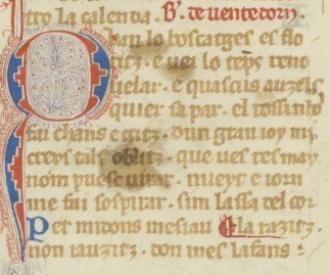 tro la calenda. B'. de uentedorn
Quan lo boscatges es flo
ritz. e uei lo temps reno
uelar. e quascus auzels
quier sa par. el rossinhol
fai chans e critz. dun gran ioy mi
creys tals oblitz. que ues res may
nom puesc uirar. nueyt e iorn
me fai sospirar. sim lassa del cor
Pel midons mesiau la razitz.
non iauzitz. don mes lafans